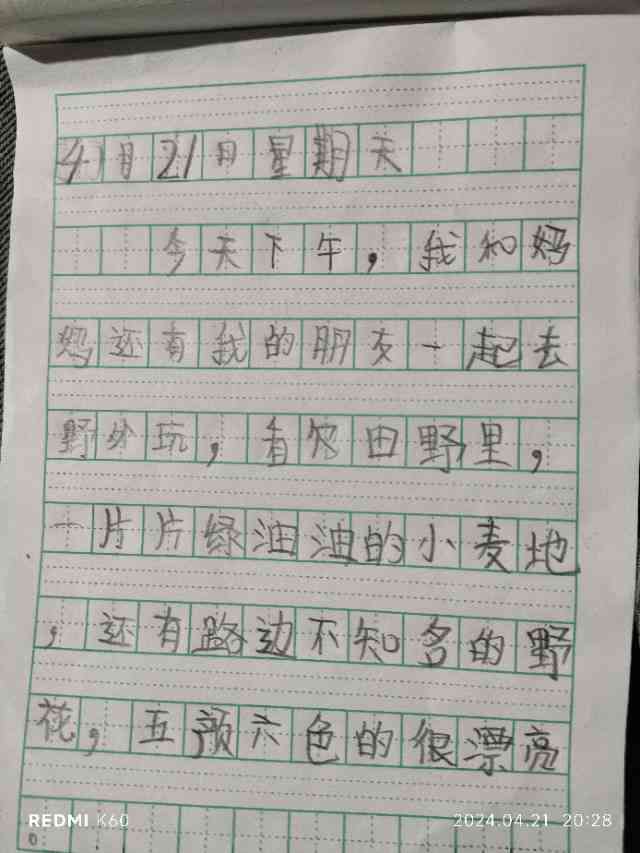 4月21日星期天
今天下午，我和妈
妈还有我的朋友一起去
野外玩，看
田野里，
一片片绿油油的小麦地
，还有路边不知名的野
花，五颜六色的很漂亮
REDMI K60
2024.04.21 20:28